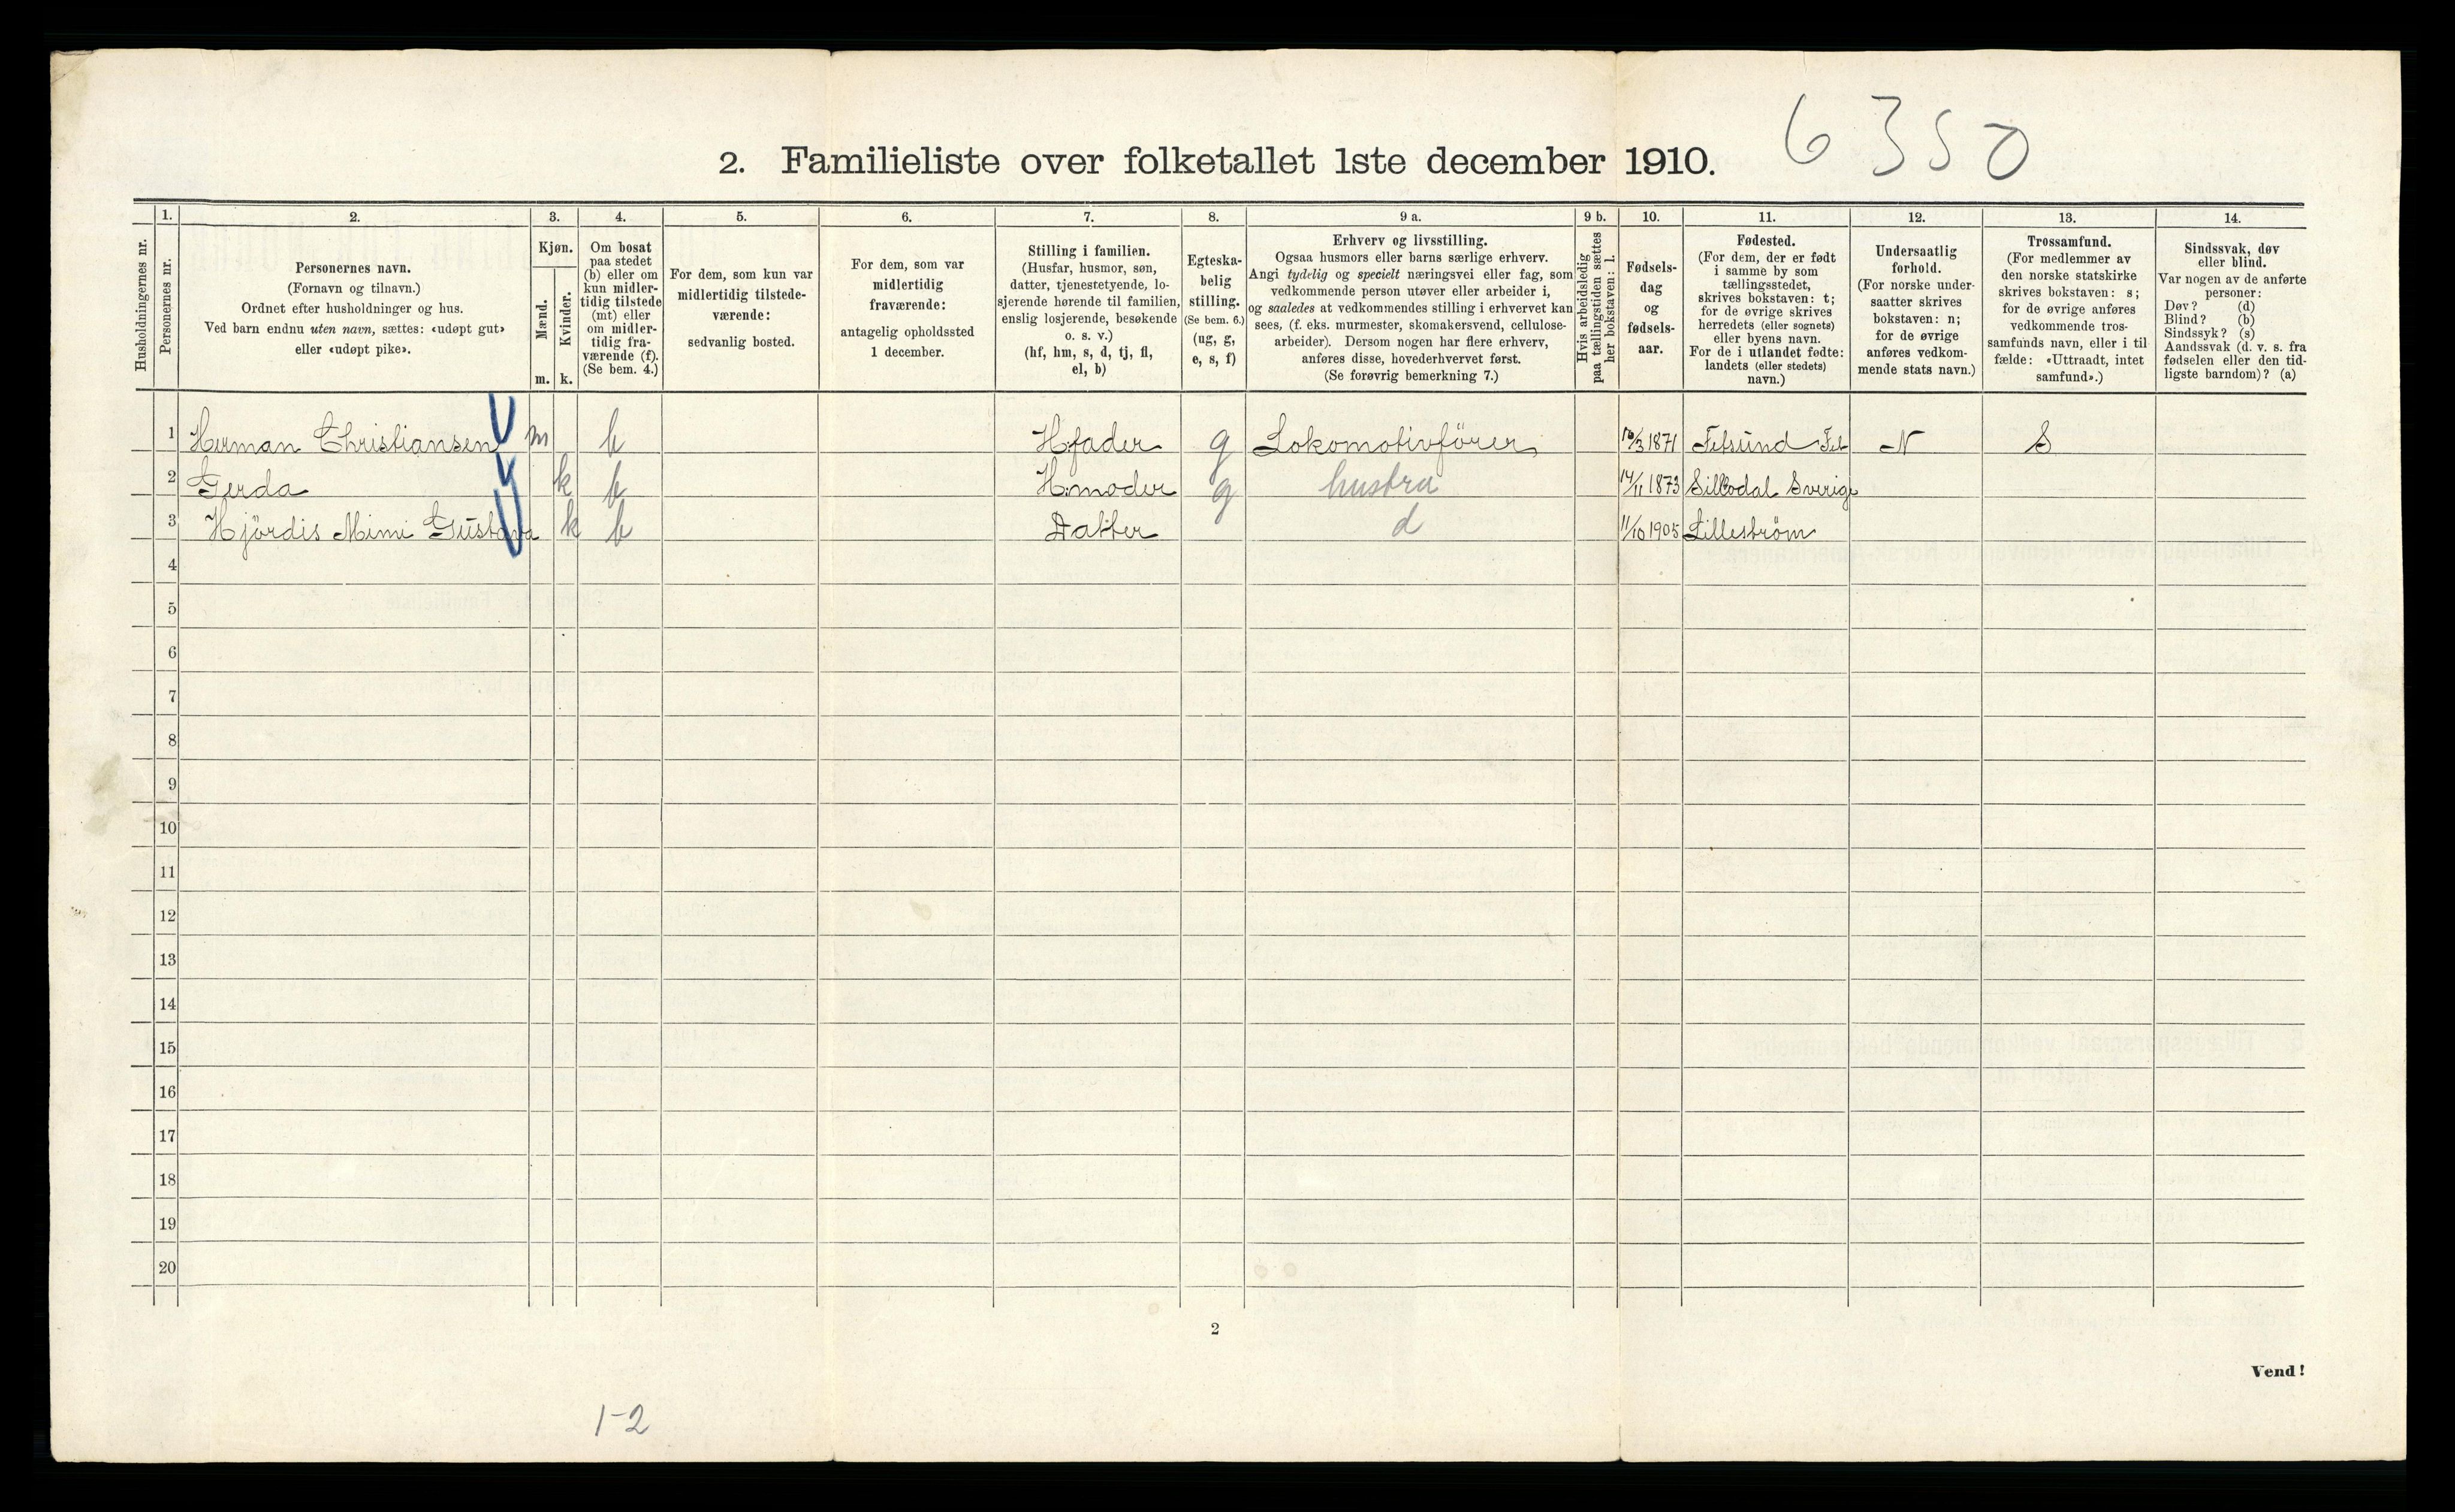 6350
2. Familieliste over folketallet 1ste december 1910.
1. 2. 3. 4. 5. 6. 7. 8. 9 a. 9 b. 10. 11. 12. 13. 14.
Husholdningernes nr.
Personernes nr.
Personernes navn.
(Fornavn og tilnavn.)
Ordnet efter husholdninger og hus.
Ved barn endnu uten navn, sættes: «udøpt gut»
eller «udøpt pike».
Kjøn.
Mænd.
m.
Kvinder.
k.
Om bosat
paa stedet
(b) eller om
kun midler-
tidig tilstede
(mt) eller
om midler-
tidig fra-
værende (f).
(Se bem. 4.)
For dem, som kun var
midlertidig tilstede-
værende:
sedvanlig bosted.
For dem, som var
midlertidig
fraværende:
antagelig opholdssted
1 december.
Stilling i familien.
(Husfar, husmor, søn,
datter, tjenestetyende, lo-
sjerende hørende til familien,
enslig losjerende, besøkende
o. s. v.)
(hf, hm, s, d, tj, fl,
el, b)
Egteska-
belig
stilling.
(Se bem. 6.)
(ug, g,
e, s, f)
Erhverv og livsstilling.
Ogsaa husmors eller barns særlige erhverv.
Angi tydelig og specielt næringsvei eller fag, som
vedkommende person utøver eller arbeider i,
og saaledes at vedkommendes stilling i erhvervet kan
sees, (f. eks. murmester, skomakersvend, cellulose-
arbeider). Dersom nogen har flere erhverv,
anføres disse, hovederhvervet først.
(Se forøvrig bemerkning 7.)
Hvis arbeidsledig
paa tællingstiden sættes
her bokstaven: l.
Fødsels-
dag
og
fødsels-
aar.
Fødested.
(For dem, der er født
i samme by som
tællingsstedet,
skrives bokstaven: t;
for de øvrige skrives
herredets (eller sognets)
eller byens navn.
For de i utlandet fødte:
landets (eller stedets)
navn.)
Undersaatlig
forhold.
(For norske under-
saatter skrives
bokstaven: n;
for de øvrige
anføres vedkom-
mende stats navn.)
Trossamfund.
(For medlemmer av
den norske statskirke
skrives bokstaven: s;
for de øvrige anføres
vedkommende tros-
samfunds navn, eller i til-
fælde: «Uttraadt, intet
samfund».)
Sindssvak, døv
eller blind.
Var nogen av de anførte
personer:
Døv? (d)
Blind? (b)
Sindssyk? (s)
Aandssvak (d. v. s. fra
fødselen eller den tid-
ligste barndom)? (a)
1 Herman Christiansen m b H.fader g Lokomotivförer 10/3 1871 Fetsund Fet N S
2 Gerda k b H.moder g hustru 14/11 1873 Sillbodal Sverige
3 Hjördis Mimi Gustava k b Datter d 11/10 1905 Lilleström
4
5
6
7
8
9
10
11
12
13
14
15
16
17
18
19
20
2
Vend!
1-2